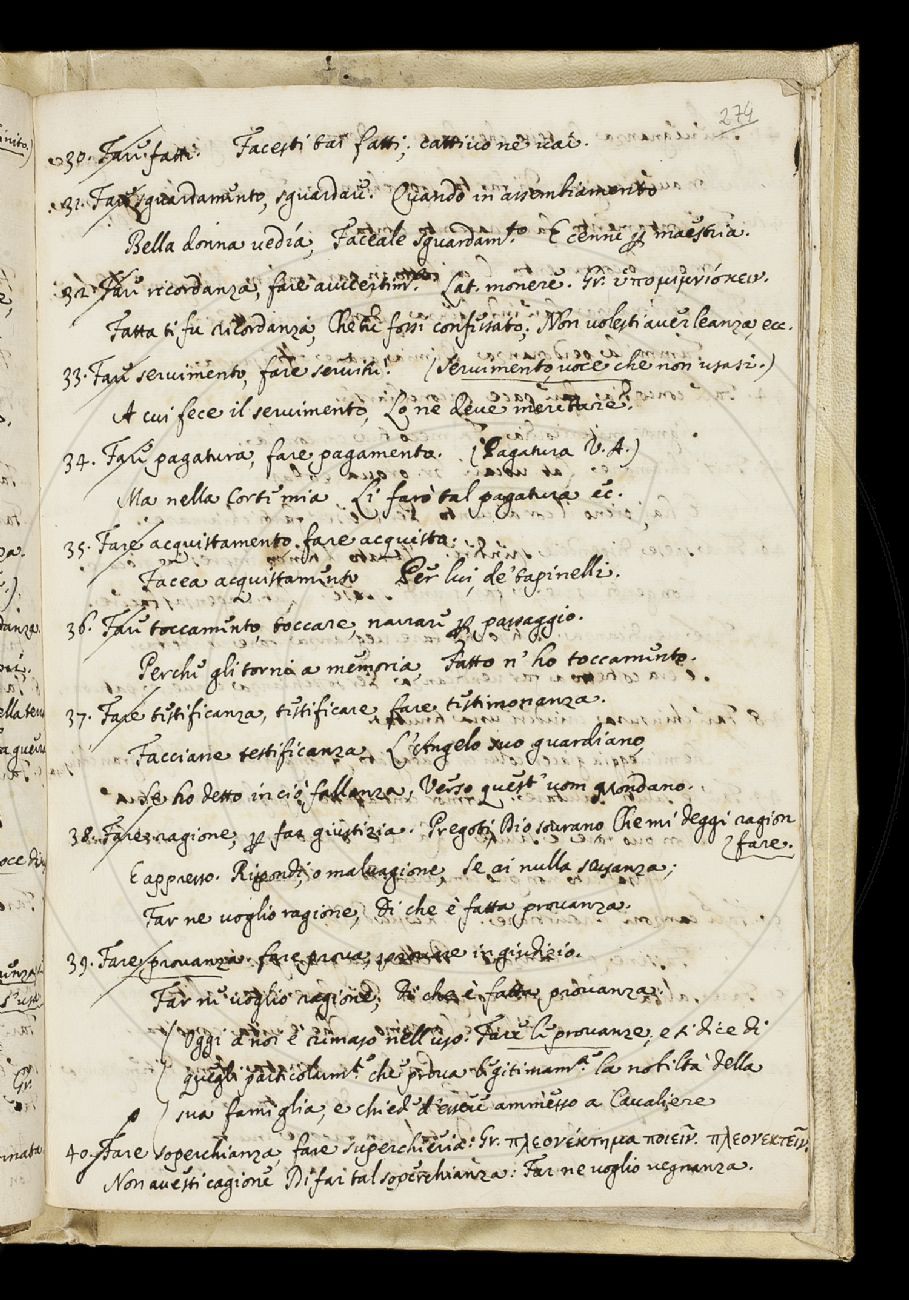 274
30. Fare fatti. Facesti tai fatti, cattivo ne vai.
31. Fare sguardamento, sguardare. Quando in assembiamento
Bella donna vedía, Faceale sguardam.to E cenni p maestria.
32. Fare recordanza, fare Lat. monere. Gr. ὑπομιμνήσκειν.
Fatta ti fu ricordanza, Che tu fossi confessato; Non volesti aver leanza, ecc.
33. Fare servimento, fare servitù. (Servimento, voce che non usasi.)
A cui fece il servimento, Lo ne deve meritare.
34. Fare pagatura, fare pagamento. (Pagatura V. A.)
Ma nella Corte mia Li farò tal pagatura ec.
35. Fare acquistamento, fare acquisto:
Facea acquistamento Per lui, de' tapinelli.
36. Fare toccamento, toccare, narrare p passaggio.
Perchè gli torni a memoria Fatto n' ho toccamento.
37. Fare testificanza, testificare, fare testimonanza.
Facciane testificanza L'Angelo suo guardiano,
Se ho detto in ciò fallanza, Verso quest' uom mondano.
38. Fare ragione, p far giustizia. Pregoti, Dio sovrano Che mi deggi ragion
fare.
E appresso. Rispondi, o malvagione, Se ai nulla scusanza;
Far ne voglio ragione, Di che è fatta provanza.
39. Fare provanza. fare prova, provare in giudizio.
Far ne voglio ragione, Di che è fatta provanza.
(Oggi a noi è rimaso nell' uso. Fare le provanze, e si dice di
quegli che prova legitimam.te la nobiltà della
sua famiglia, e chiede d'essere ammesso a Cavaliere
40. Fare soperchianza fare superchieria: Gr. πλεονέκτημα ποιεῖν. πλεονεκτεῖν.
Non avesti cagione Di fari tal soperchianza: Far ne voglio vegnanza.